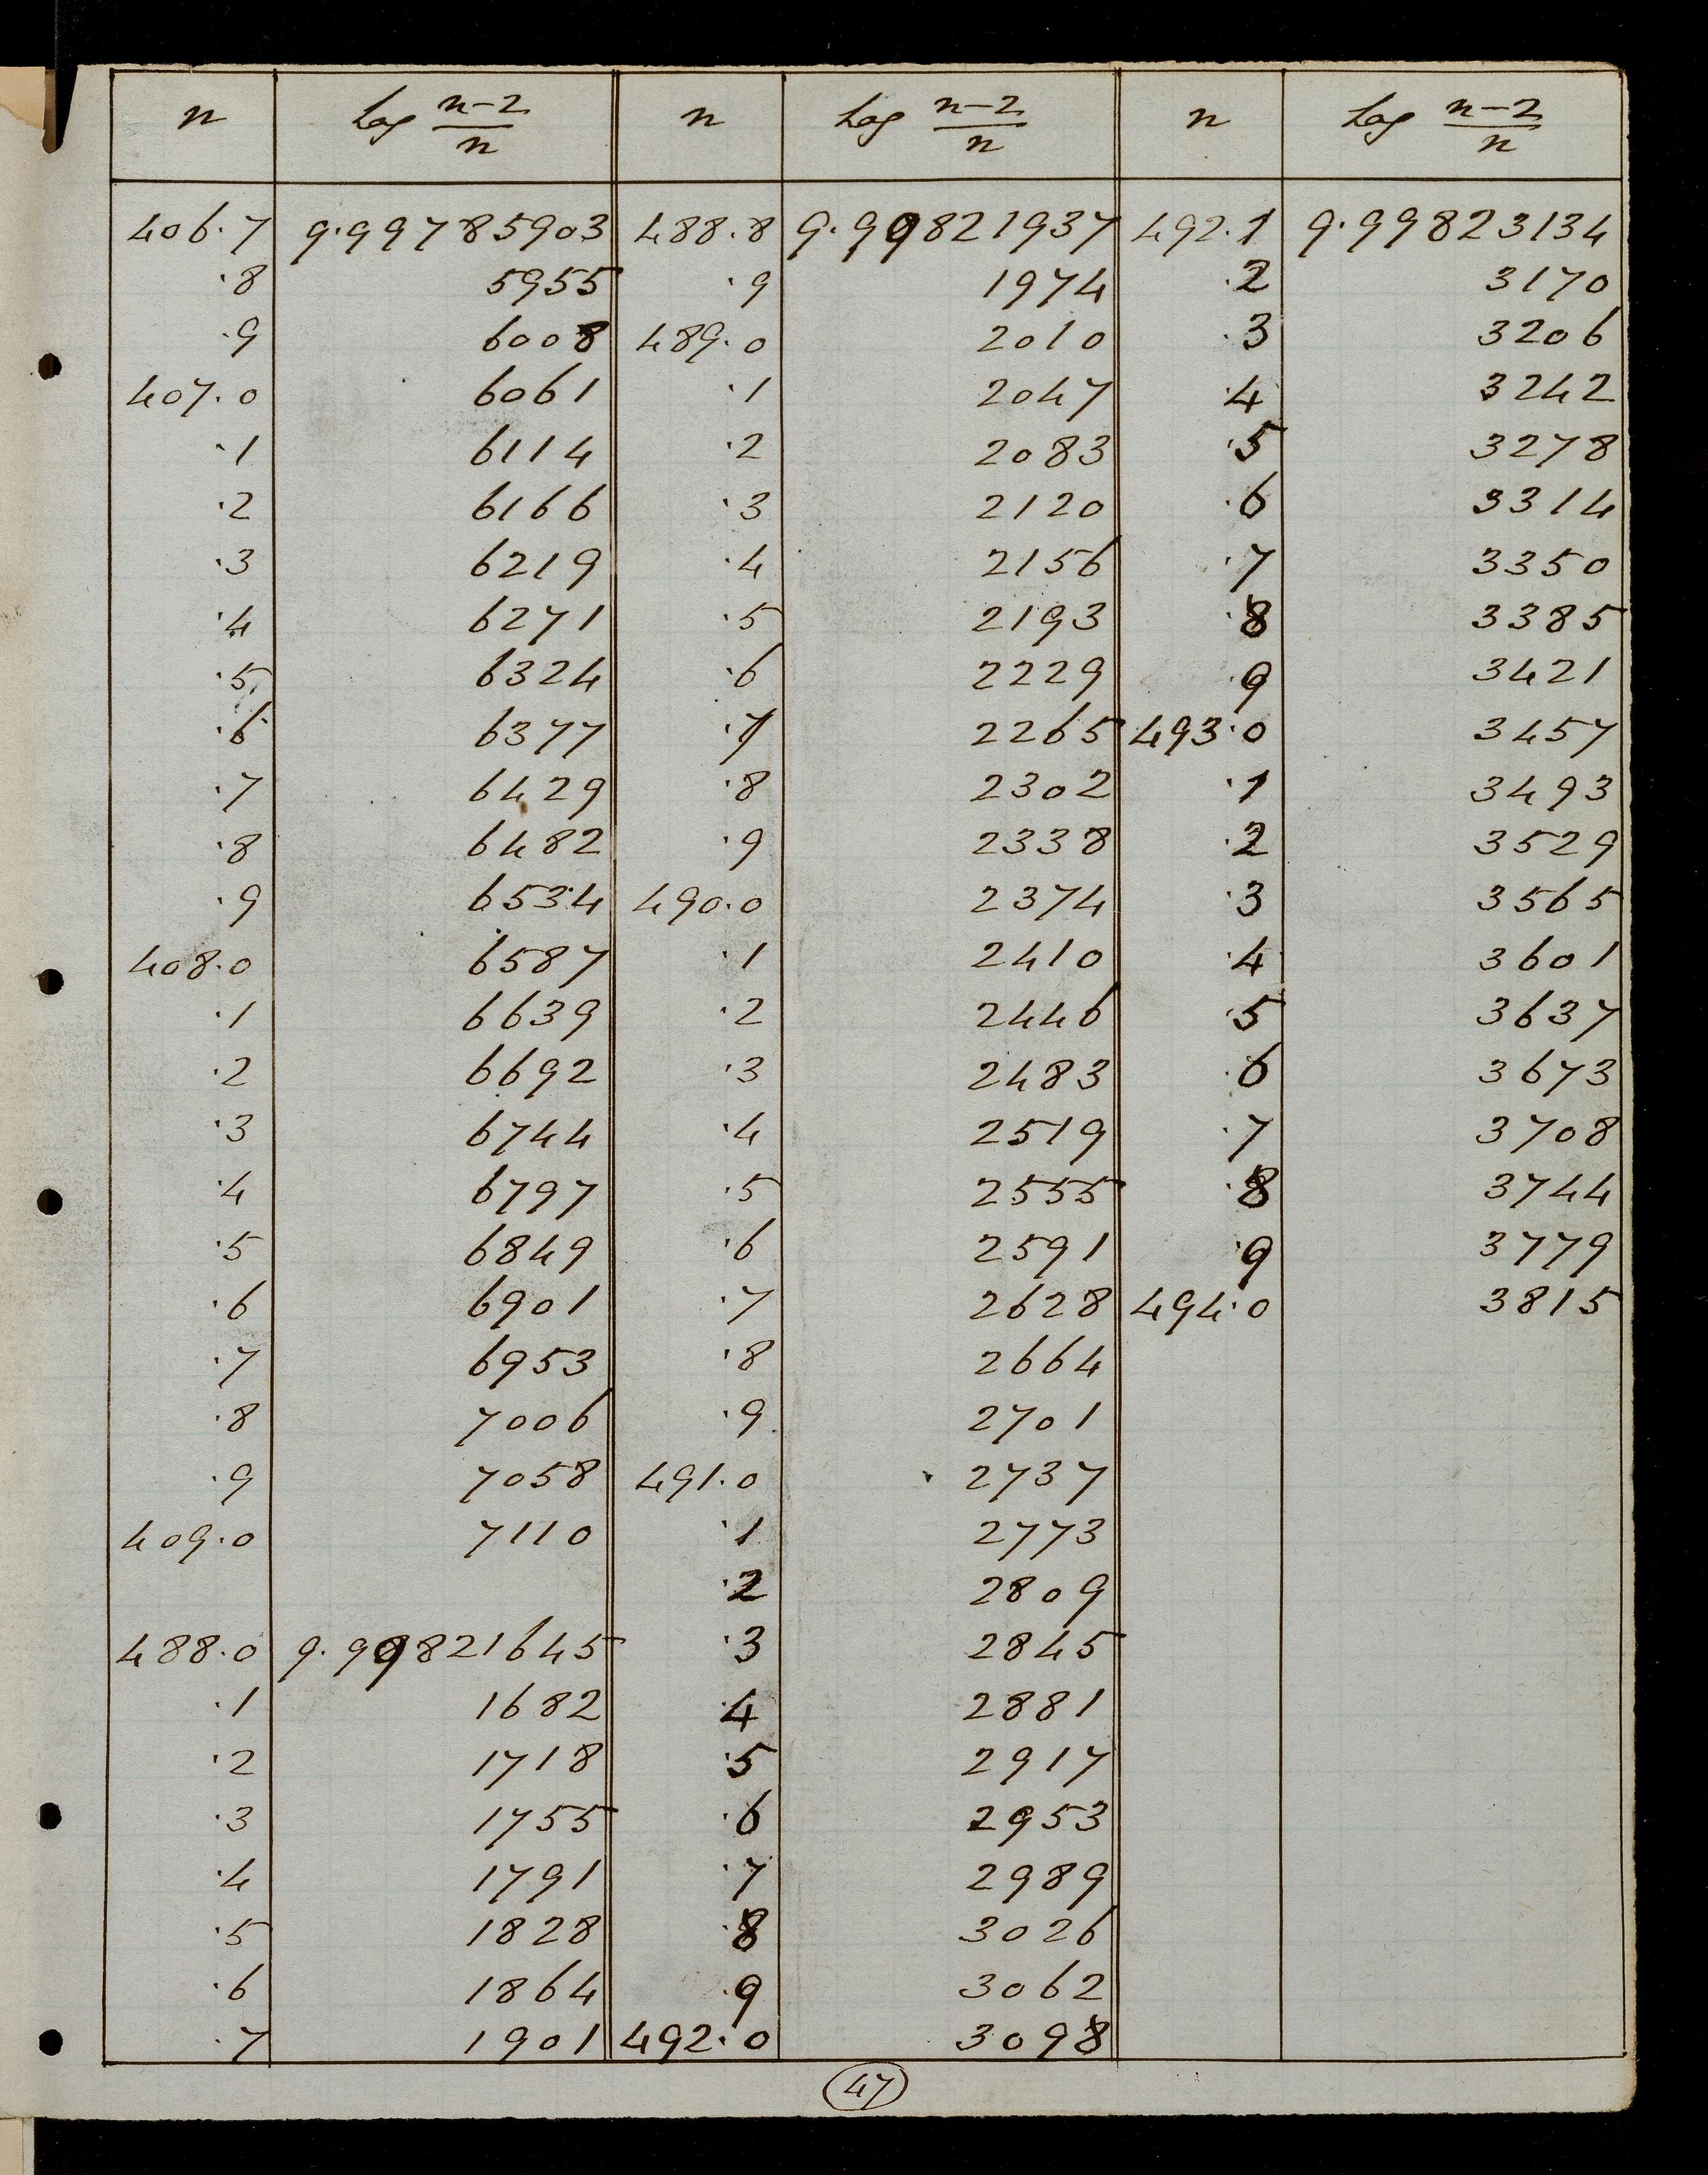 n log n-2/n n log n-2/n n log n-2/n
406.7 9.997785903 488.8 9.99821937 492.1 9.99823134
.8 5955 .9 1974 .2 3170
.9 6008 489.0 2010 .3 3206
407.0 6061 .1 2047 .4 3242
.1 6114 .2 2083 .5 3278
.2 6166 .3 2120 .6 3314
.3 6219 .4 2156 .7 3350
.4 6271 .5 2193 .8 3385
.5 6324 .6 2229 .9 3421
.6 6377 .7 2265 493.0 3457
.7 6429 .8 2302 .1 3493
.8 6482 .9 2338 .2 3529
.9 6534 490.0 2374 .3 3565
408.0 6587 .1 2410 .4 3601
.1 6639 .2 2446 .5 3637
.2 6692 .3 2483 .6 3673
.3 6744 .4 2519 .7 3708
.4 6797 .5 2555 .8 3744
.5 6849 .6 2591 .9 3779
.6 6901 .7 2628 494.0 3815
.7 6953 .8 2664
.8 7006 .9 2701
.9 7058 491.0 2737
409.0 7110 .1 2773
.2 2809
488.0 9.99821645 .3 2845
.1 1682 .4 2881
.2 1718 .5 2917
.3 1755 .6 2953
.4 1791 .7 2989
.5 1828 .8 3026
.6 1864 .9 3062
.7 1901 492.0 3098
47